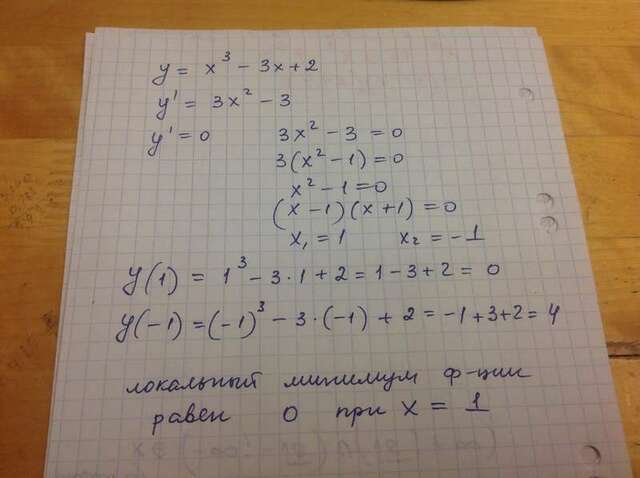 y = x³ - 3x + 2
y' = 3x² - 3
y' = 0 3x² - 3 = 0
3(x² - 1) = 0
x² - 1 = 0
(x - 1)(x + 1) = 0
x₁ = 1 x₂ = -1
y(1) = 1³ - 3·1 + 2 = 1 - 3 + 2 = 0
y(-1) = (-1)³ - 3·(-1) + 2 = -1 + 3 + 2 = 4
локальный минимум ф-ции
равен 0 при x = 1